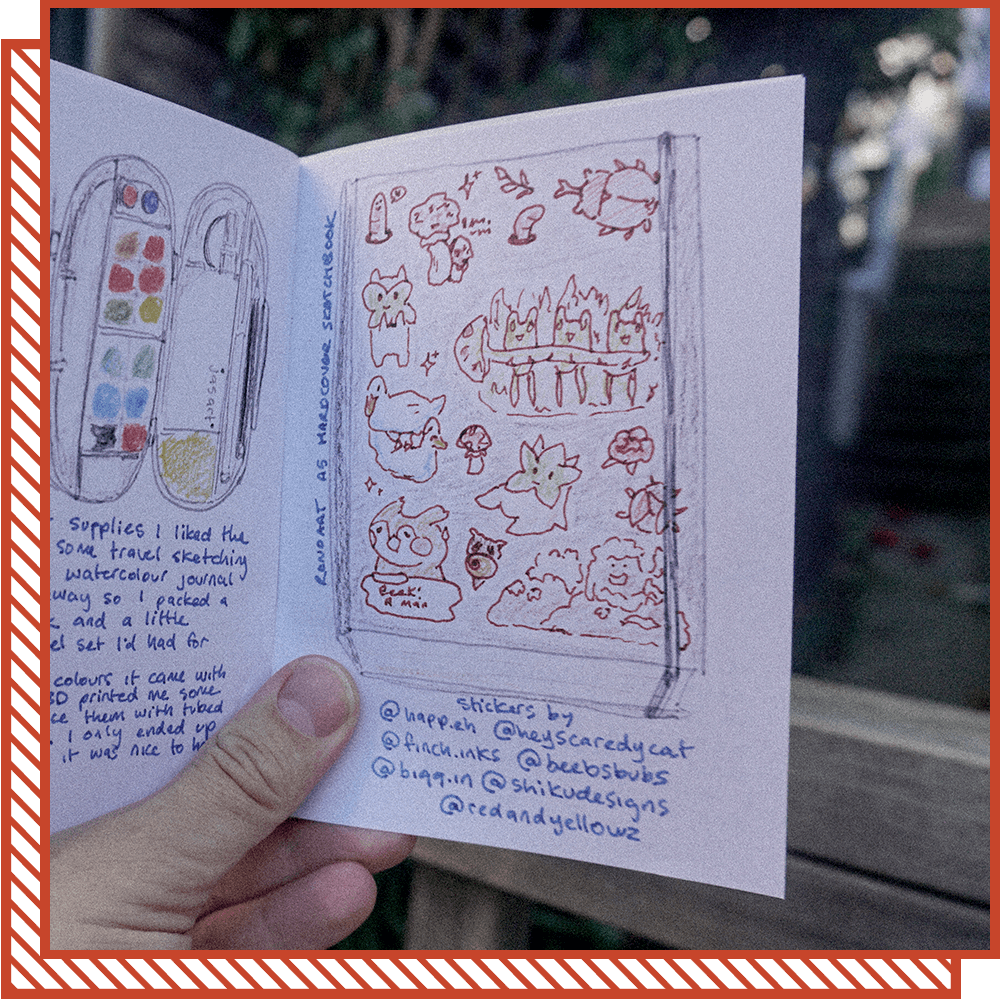 Jasart
supplies I liked the
some travel sketching
watercolour journal
way so I packed a
and a little
set I'd had for
colours it came with
3D printed me some
them with tubed
I only ended up
it was nice to
RONDART A5 HARDCOVER SKETCHBOOK
BEEK!
A MAN
stickers by
@happ.eh @heyscaredycat
@finch.inks @beebsbubs
@bigg.in @shikudesigns
@redandyellowz